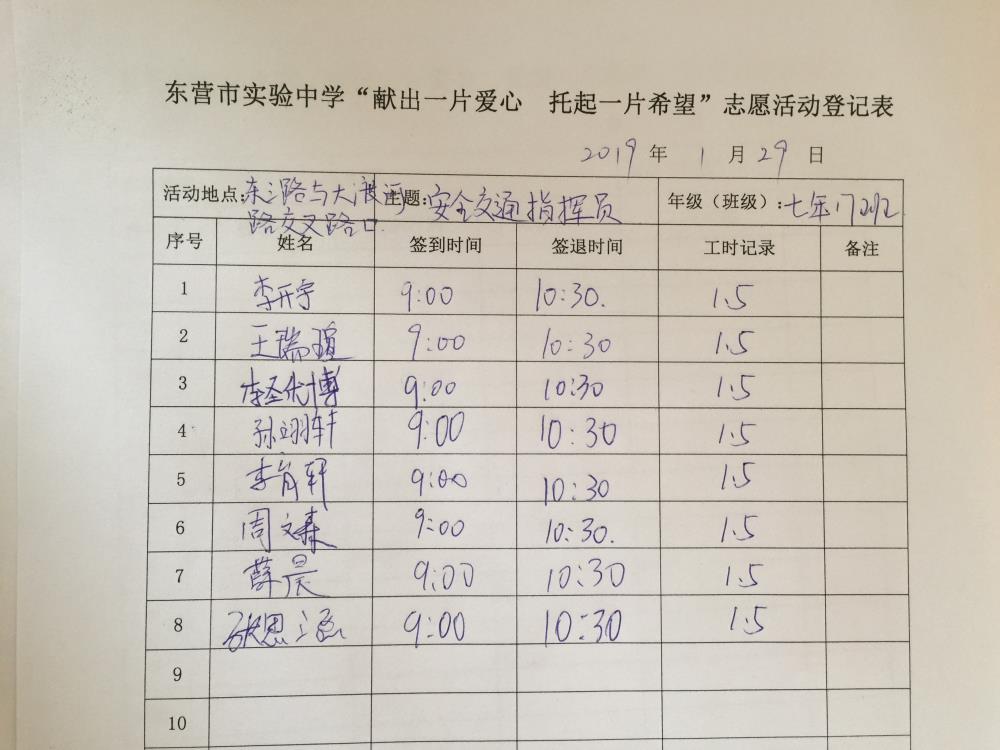 东营市实验中学“献出一片爱心 托起一片希望”志愿活动登记表
2019 年 1 月 29 日
活动地点:东三路与大渡河路交叉路口 主题:安全交通指挥员 年级(班级):七年17班
序号 姓名 签到时间 签退时间 工时记录 备注
1 李开宇 9:00 10:30. 1.5
2 王瑞瑄 9:00 10:30 1.5
3 9:00 10:30 1.5
4 孙翊轩 9:00 10:30 1.5
5 李 轩 9:00 10:30 1.5
6 周文森 9:00 10:30. 1.5
7 薛晨 9:00 10:30 1.5
8 张思涵 9:00 10:30 1.5
9
10